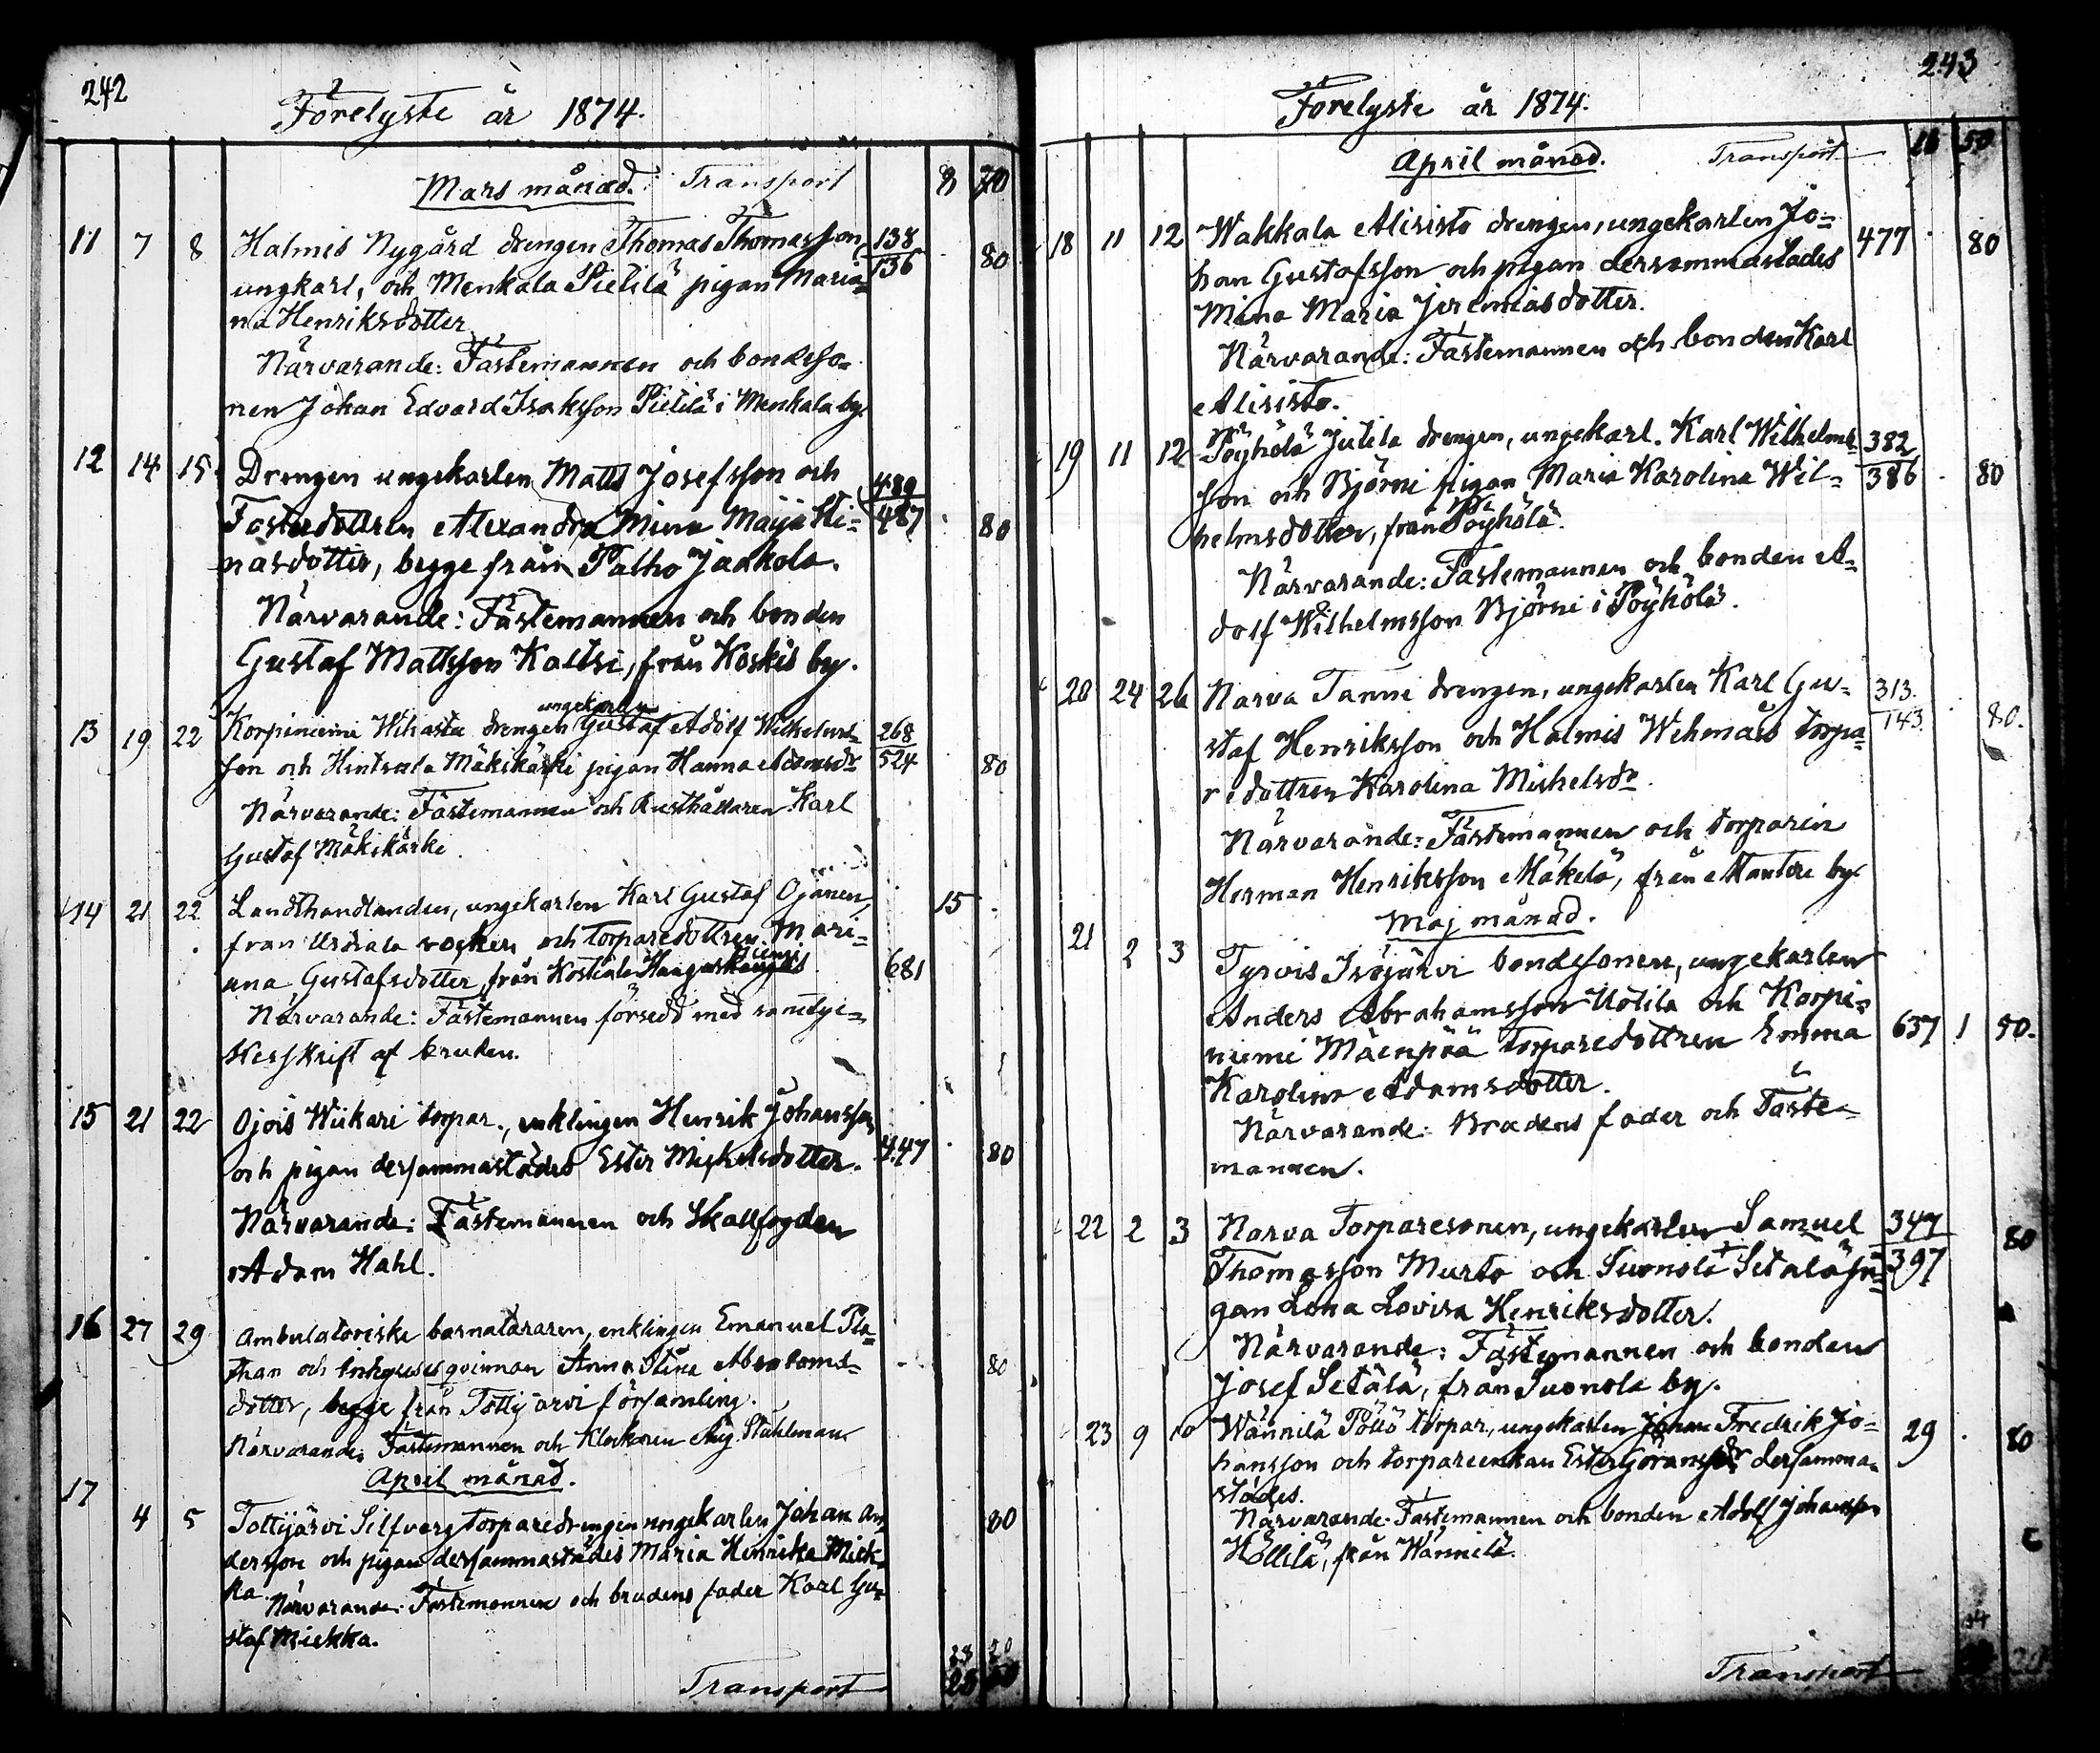 242
Förelyste år 1874.
Mars månad. Transport 8 70
11 7 8 Halmis Nygård drengen Thomas Thomasson, 138
ungkarl, och Menkala Pietilä pigan Maria= 136 80
na Henriksdotter
Närvarande: Fästemannen och bondeso=
nen Johan Edvard Isaksson Pietilä i Menkala by.
12 14 15 Drengen ungekarlen Matts Josefsson och 489
Fosterdottren Alexandra Mina Maija Sti= 487 80
nasdotter, begge från Palho Jaakola.
Närvarande: Fästemannen och bonden
Gustaf Mattsson Kaltsi, från Koskis by.
ungekarlen
13 19 22 Korpiniemi Wiharta drengen Gustaf Adolf Wilhelms= 268
son och Hintsala Mäkikärki pigan Hanna Adamsdr 524 80
Närvarande: Fästemannen och Rusthållaren Karl
Gustaf Mäkikärki.
14 21 22 Landthandlanden, ungekarlen Karl Gustaf Ojanen, 15
från Urdiala socken och torparedottren Mari=
ana Gustafsdotter, från Kostiala 681
Närvarande: Fästemannen försedd med samtyc=
kesskrift af bruden.
15 21 22 Ojois Wiikari torpar., enklingen Henrik Johansson
och pigan dersammastädes Ester Michelsdotter. 447 80
Närvarande: Fästemannen och Skallfogden
Adam Hahl.
16 27 29 Ambulatoriske barnaläraren, enklingen Emanuel Pla=
than och inhyses qvinnan Anna Stina Abrahams= 80
dotter, begge från Tottijärvi församling.
Närvarande: Fästemannen och Klockaren Aug. Ståhlman
April månad.
17 4 5 Tottijärvi Silfverg torparedrengen ungekarlen Johan An= 80
dersson och pigan dersammastädes Maria Henrika Miek=
ka
Närvarande: Fästemannen och brudens fader Karl Gu=
staf Miekka.
Transport
243
Förelyste år 1874.
April månad. Transport 50
18 11 12 Wakkala Alisisto drengen, ungekarlen Jo= 477 80
han Gustafsson och pigan dersammastädes
Mina Maria Jeremiasdotter.
Närvarande: Fästemannen och bonden Karl
Alisisto.
19 11 12 Pöyhölä Jutila drengen, ungekarl. Karl Wilhelms= 382
son och Björni pigan Maria Karolina Wil= 386 80
helmsdotter, från Pöyhölä.
Närvarande: Fästemannen och bonden A=
dolf Wilhelmsson Björni i Pöyhölä.
20 24 26 Narva Tanni drengen, ungekarlen Karl Gu= 313.
staf Henriksson och Halmis Wehmas torpa= 143. 80.
redottren Karolina Michelsdr.
Närvarande: Fästemannen och torparen
Herman Henriksson Mäkelä, från Mantere by.
Maj månad.
21 2 3 Tyrvis Isojärvi bondesonen, ungekarlen
Anders Abrahamsson Uotila och Korpi=
niemi Mäenpää torparedottren Emma 637 1 50.
Karolina Adamsdotter.
Närvarande: Brudens fader och Fäste=
mannen.
22 2 3 Narva Torparesonen, ungekarlen Samuel 347 80
Thomasson Murto och Suonola Setälä pi= 397
gan Lena Lovisa Henriksdotter.
Närvarande: Fästemannen och bonden
Josef Setälä, från Suonola by.
23 9 10 Wännilä Pöllö torpar., ungekarlen Johan Fredrik Jo= 29 80
hansson och torpareenkan Ester Göransdr dersamma=
städes.
Närvarande: Fästemannen och bonden Adolf Johansson
Höllilä, från Wännilä.
Transport